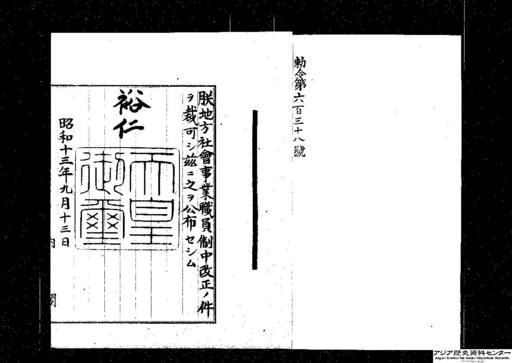 勅令第六百三十八號
朕地方社會事業職員制中改正ノ件
ヲ裁可シ玆ニ之ヲ公布セシム
裕仁
天皇御璽
昭和十三年九月十三日
内閣
アジア歴史資料センター
Japan Center for Asian Historical Records